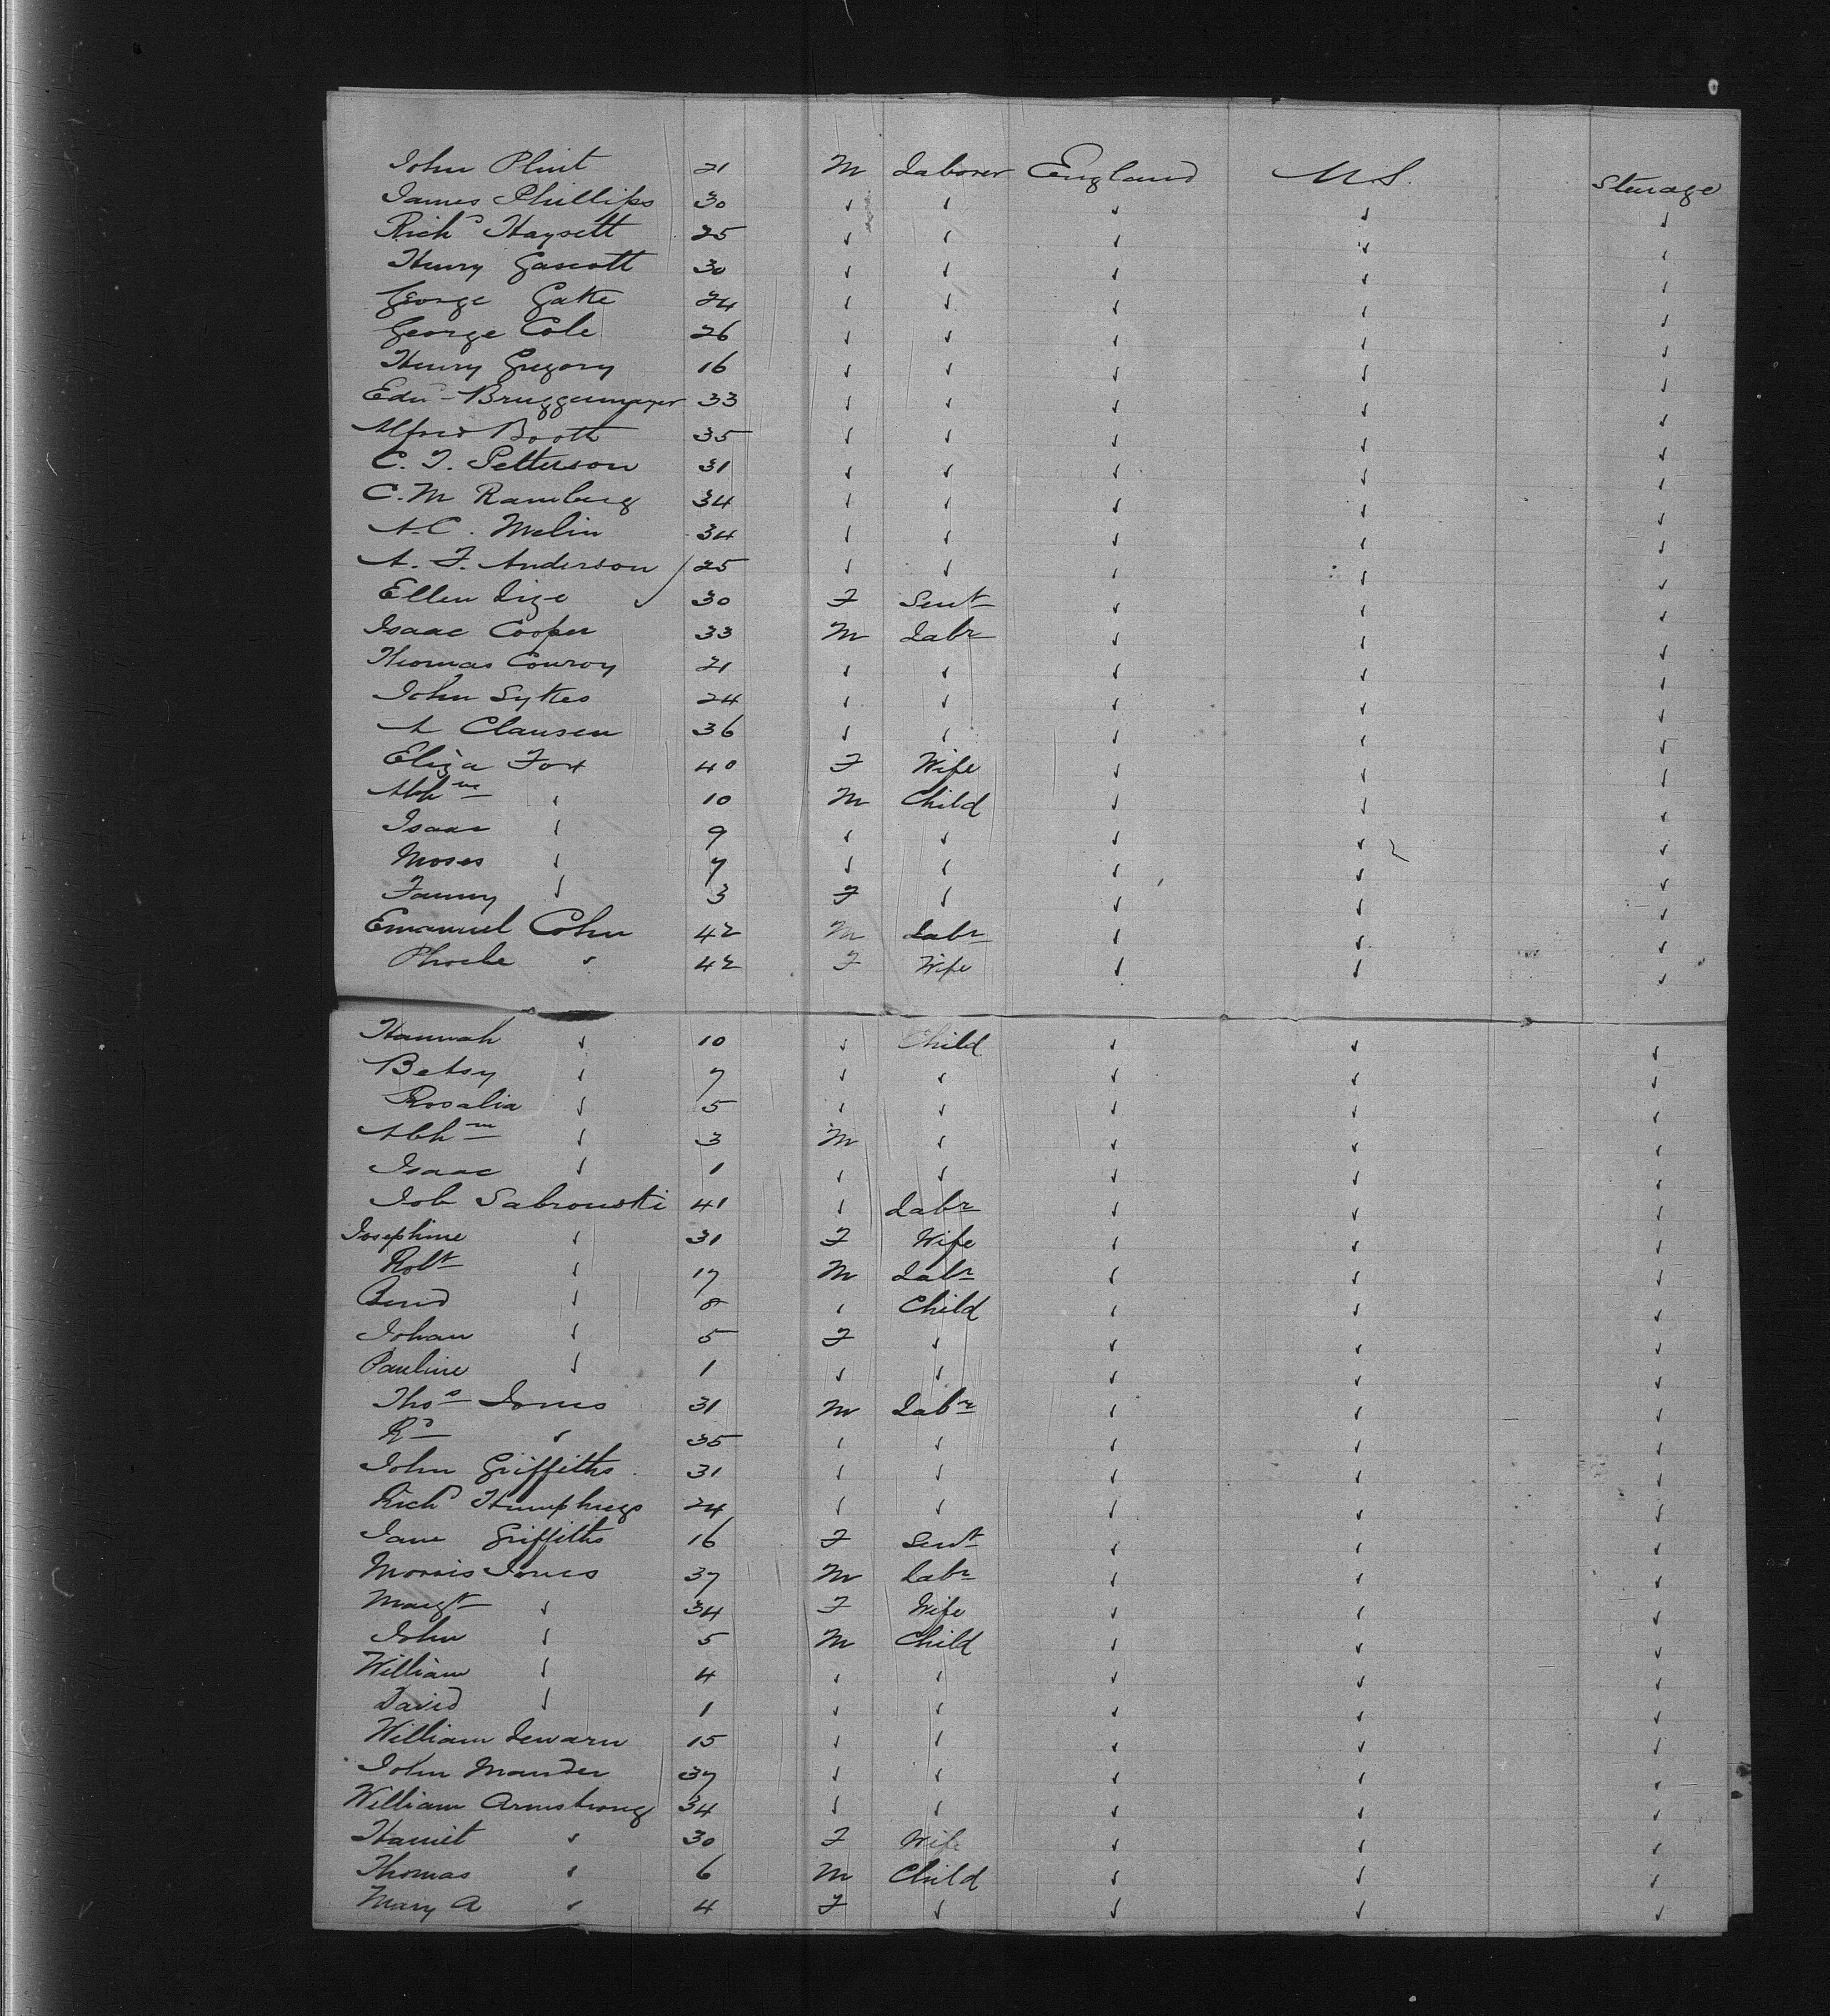 John Plint 21 M Laborer England U.S. Steerage
James Phillips 30 " " " " "
Richd Haysett 25 " " " " "
Henry Gascott 30 " " " " "
George Gake 24 " " " " "
George Cole 26 " " " " "
Henry Gregory 16 " " " " "
Edwd Bruggemeyer 33 " " " " "
Alfred Booth 35 " " " " "
C. J. Petterson 31 " " " " "
C. M Ramberg 34 " " " " "
A. C. Melin 34 " " " " "
A. F. Anderson 25 " " " " "
Ellen Lize 30 F Servt " " "
Isaac Cooper 33 M Labr " " "
Thomas Conroy 21 " " " " "
John Sykes 24 " " " " "
A Clausen 36 " " " " "
Eliza Fox 40 F Wife " " "
Abhm " 10 M Child " " "
Isaac " 9 " " " " "
Moses " 7 " " " " "
Fanny " 3 F " " " "
Emanuel Cohn 42 M Labr " " "
Phoebe " 42 F Wife " " "
Hannah " 10 " Child " " "
Betsy " 7 " " " " "
Rosalia " 5 " " " " "
Abhm " 3 M " " " "
Isaac " 1 " " " " "
Job Sabrowski 41 " Labr " " "
Josephine " 31 F Wife " " "
Robt " 17 M Labr " " "
" 8 " Child " " "
Johan " 5 F " " " "
Pauline " 1 " " " " "
Thos Jones 31 M Labr " " "
Rd " 35 " " " " "
John Griffiths 31 " " " " "
Richd Humphreys 24 " " " " "
Jane Griffiths 16 F Servt " " "
Morris Jones 37 M Labr " " "
Margt " 34 F Wife " " "
John " 5 M Child " " "
William " 4 " " " " "
David " 1 " " " " "
William Lewarn 15 " " " " "
John Mander 37 " " " " "
William Armstrong 34 " " " " "
Harriet " 30 F Wife " " "
Thomas " 6 M Child " " "
Mary A " 4 F " " " "